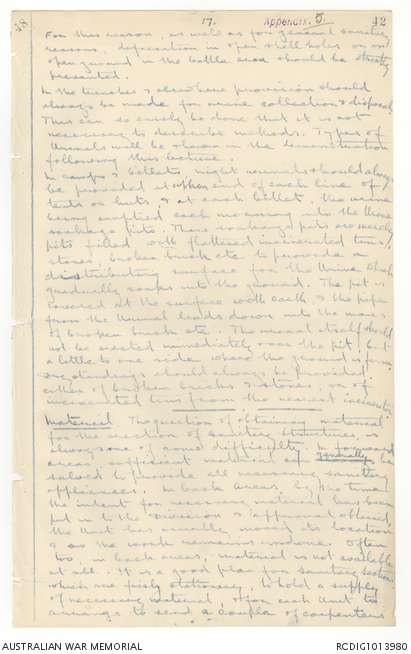 17. Appendix. J 42
For this reason, as well as for general sanitary
reasons, defecation in open shell holes or on
open ground in the battle area should be strictly
prevented.
In the trenches & elsewhere provision should
always be made for urine collection & disposal.
This can so easily be done that it is not
necessary to describe methods. Types of
Urinals will be shown in the demonstration
following this lecture.
In camps & billets night urinals should always
be provided at either end of each line of
tents or huts, & at each billet, the urine
being emptied each morning into the Urine
soakage pits. These soakage pits are merely
pits filled with flattened incinerated tins,
stones, broken brick etc to provide a
distributing surface for the Urine which
gradually soaks into the ground. The pit is
covered at the surface with earth & the pipe
from the Urinal leads down into the mass
of broken brick etc. The urinal itself should
not be erected immediately over the pit, but
a little to one side where the ground is firm
& standings should always be provided
either of broken bricks & stones, or of
incinerated tins from the nearest incinerator.
Material The question of obtaining material
for the erection of Sanitary structures, is
always one of some difficulty. In forward
areas, sufficient material can generally be
salved to provide all necessary sanitary
appliances. In back areas, by the time
the indent for necessary material has been
put in to the Division & approval obtained,
the Unit has usually moved its location
& so the work remains undone. Often
too, in back areas, material is not available
at all. It is a good plan for sanitary sections
which are fairly stationary, to hold a supply
of necessary material, & for each Unit to
arrange to send a couple of carpenters
AUSTRALIAN WAR MEMORIAL RCDIG1013980